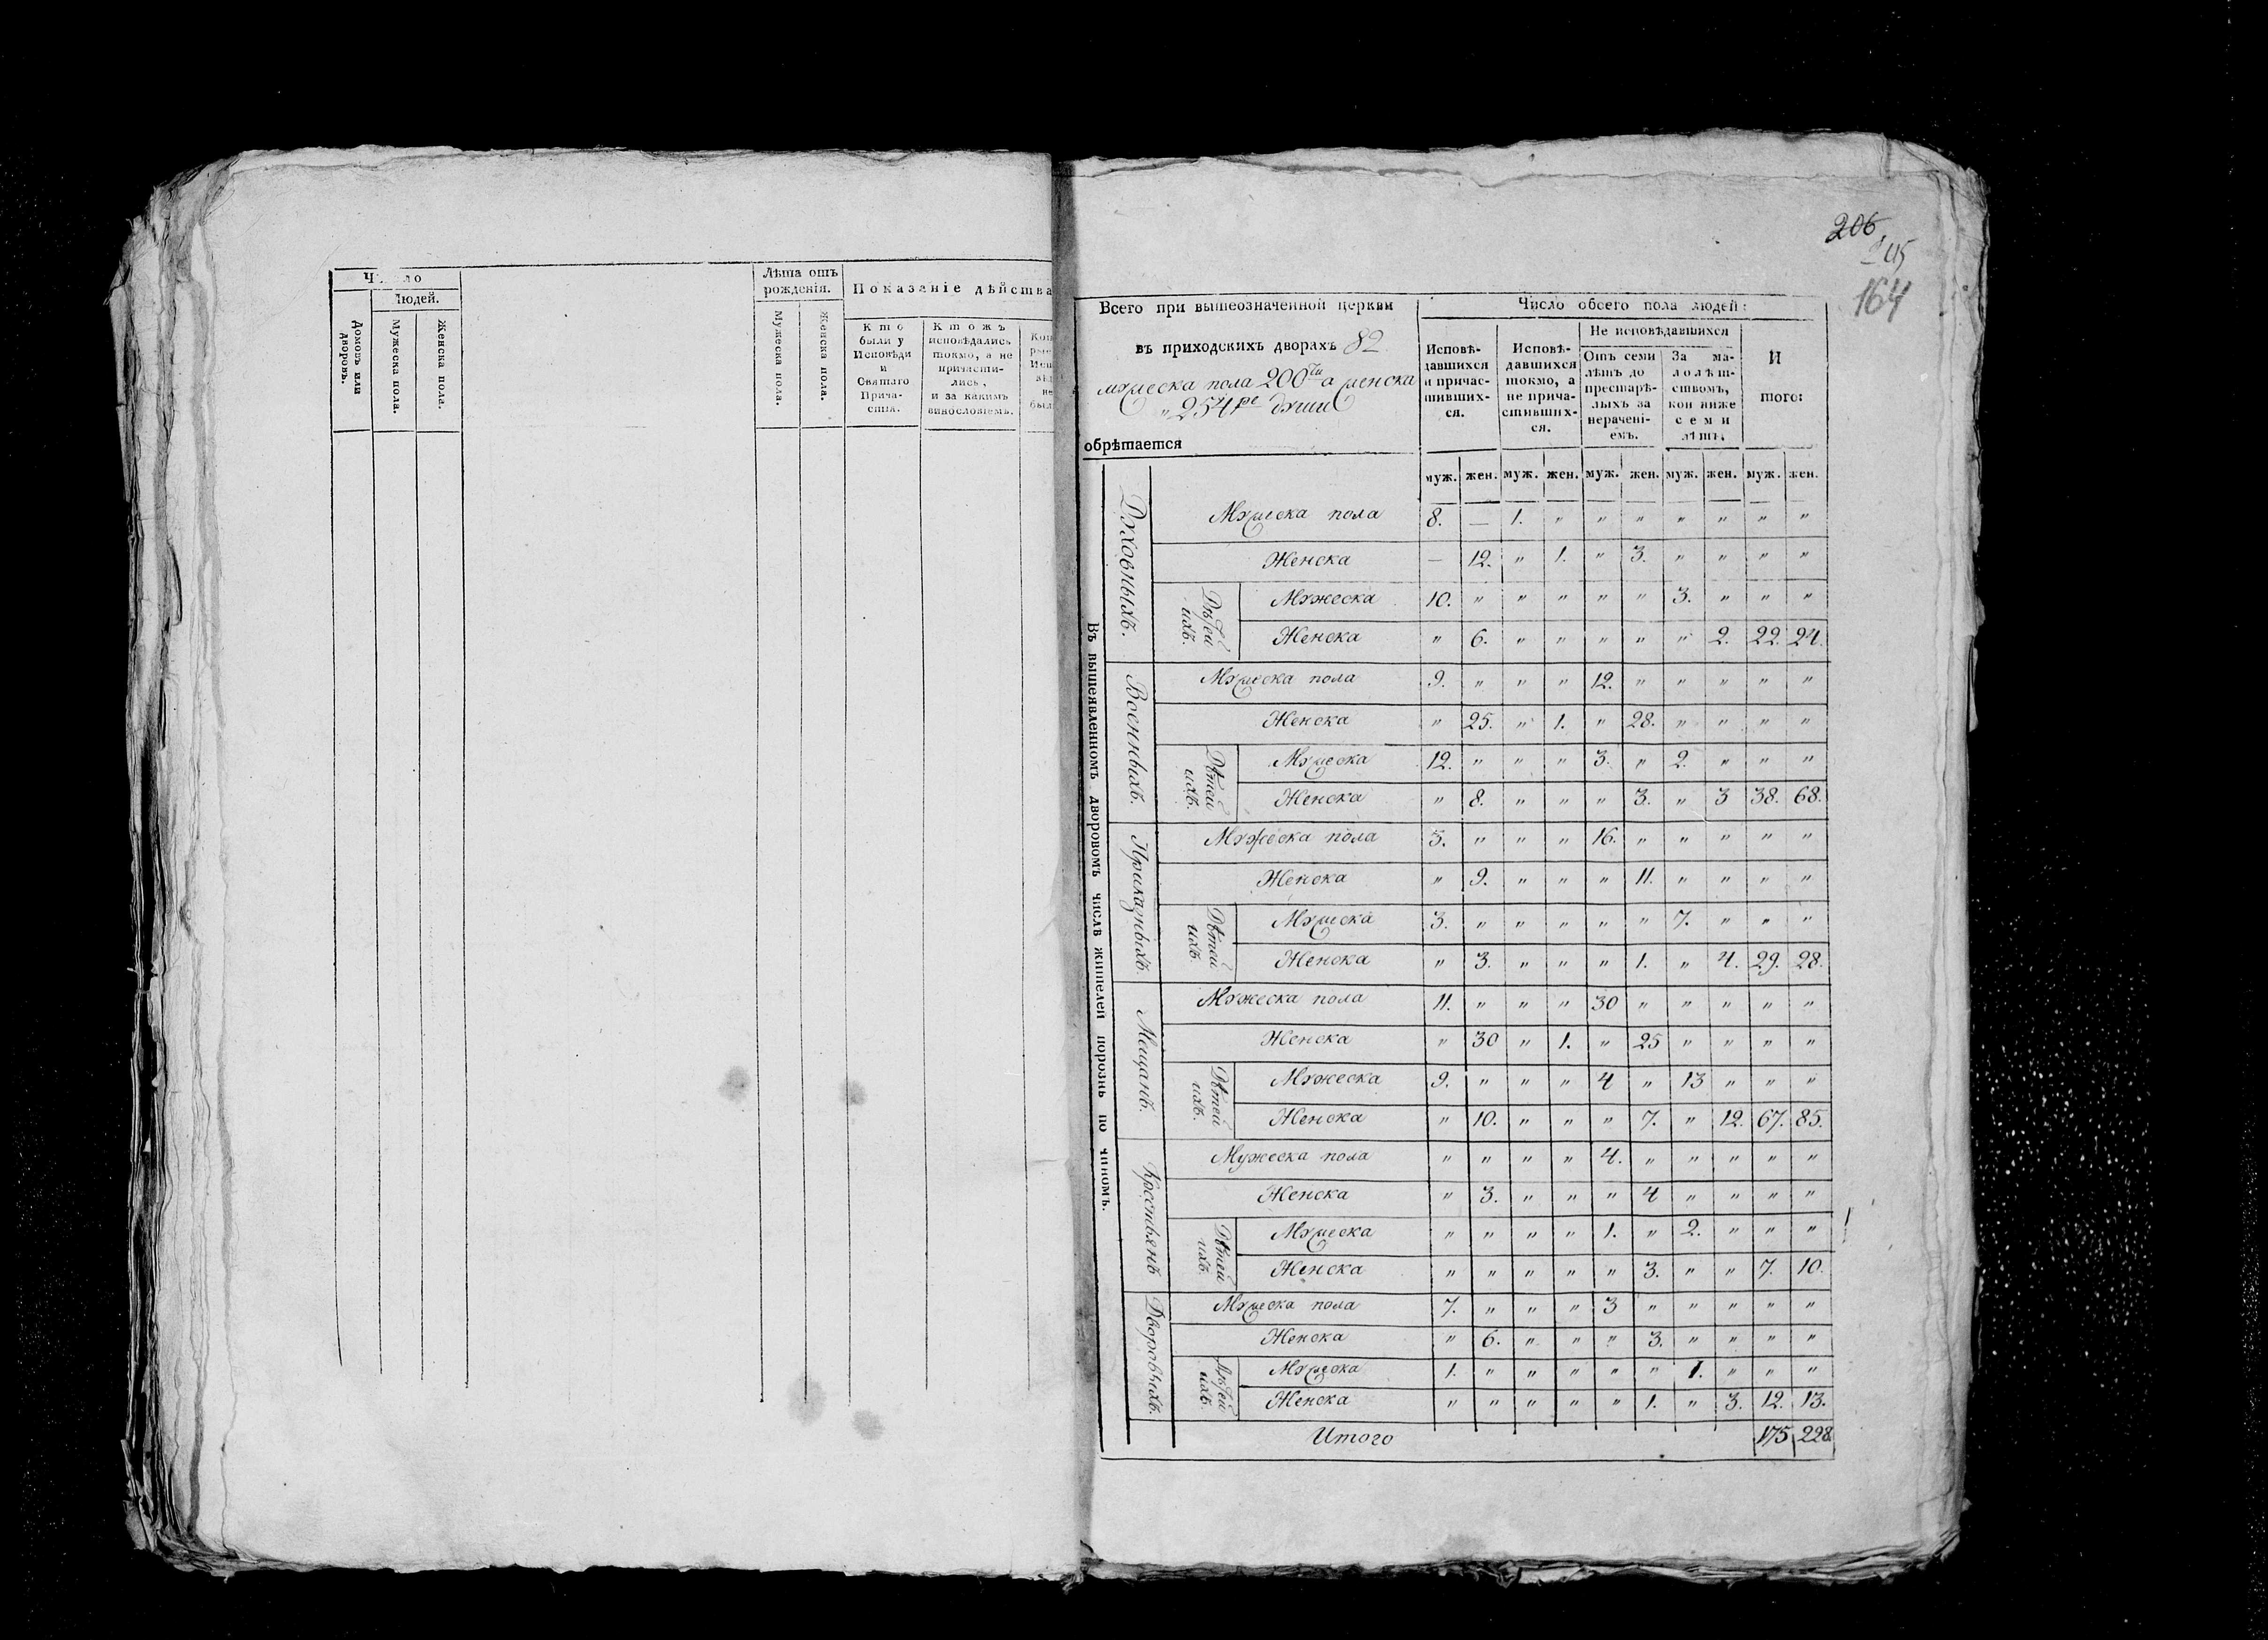 206
164
Число
Людей.
Домовъ или дворовъ.
Мужеска пола.
Женска пола.
Лѣта отъ рожденія.
Мужеска пола.
Женска пола.
Показаніе дѣйства
Кто были у Исповѣди и Святаго Причастія.
Ктожъ исповѣдались токмо, а не причастились, и за какимъ винословіемъ.
Всего при вышеозначенной церкви
въ приходскихъ дворахъ 82
мужеска пола 200ти а женска
254ре души
обрѣтается
Число обоего пола людей:
Исповѣдавшихся и причастившихся.
Исповѣдавшихся токмо, а не причастившихся.
Не исповѣдавшихся
Отъ семи лѣтъ до престарѣлыхъ за нерачені-емъ.
За малолѣтствомъ, кои ниже семи лѣтъ.
И того:
муж. жен. муж. жен. муж. жен. муж. жен. муж. жен.
Въ вышеявленномъ дворовомъ числѣ жителей порознь по чиномъ.
Духовныхъ.
Мужеска пола 8. — 1. " " " " " " "
Женска — 12. " 1. " 3. " " " "
Дѣтей ихъ.
Мужеска 10. " " " " " 3. " " "
Женска " 6. " " " " " 2. 22. 24.
Военныхъ.
Мужеска пола 9. " " " 12. " " " " "
Женска " 25. " 1. " 28. " " " "
Дѣтей ихъ.
Мужеска 12. " " " 3. " 2. " " "
Женска " 8. " " " 3. " 3 38. 68.
Приказныхъ.
Мужеска пола 3. " " " 16. " " " " "
Женска " 9. " " " 11. " " " "
Дѣтей ихъ.
Мужеска 3. " " " " " 7. " " "
Женска " 3. " " " 1. " 4. 29. 28.
Мещанъ.
Мужеска пола 11. " " " 30 " " " " "
Женска " 30 " 1. " 25 " " " "
Дѣтей ихъ.
Мужеска 9. " " " 4 " 13 " " "
Женска " 10. " " " 7. " 12. 67. 85.
Крестьянъ
Мужеска пола " " " " 4. " " " " "
Женска " 3. " " " 4 " " " "
Дѣтей ихъ.
Мужеска " " " " 1. " 2. " " "
Женска " " " " " 3. " " 7. 10.
Дворовыхъ.
Мужеска пола 7. " " " 3 " " " " "
Женска " 6. " " " 3. " " " "
Дѣтей ихъ.
Мужеска 1. " " " " " 1. " " "
Женска " " " " " 1. " 3. 12. 13.
Итого 175 228